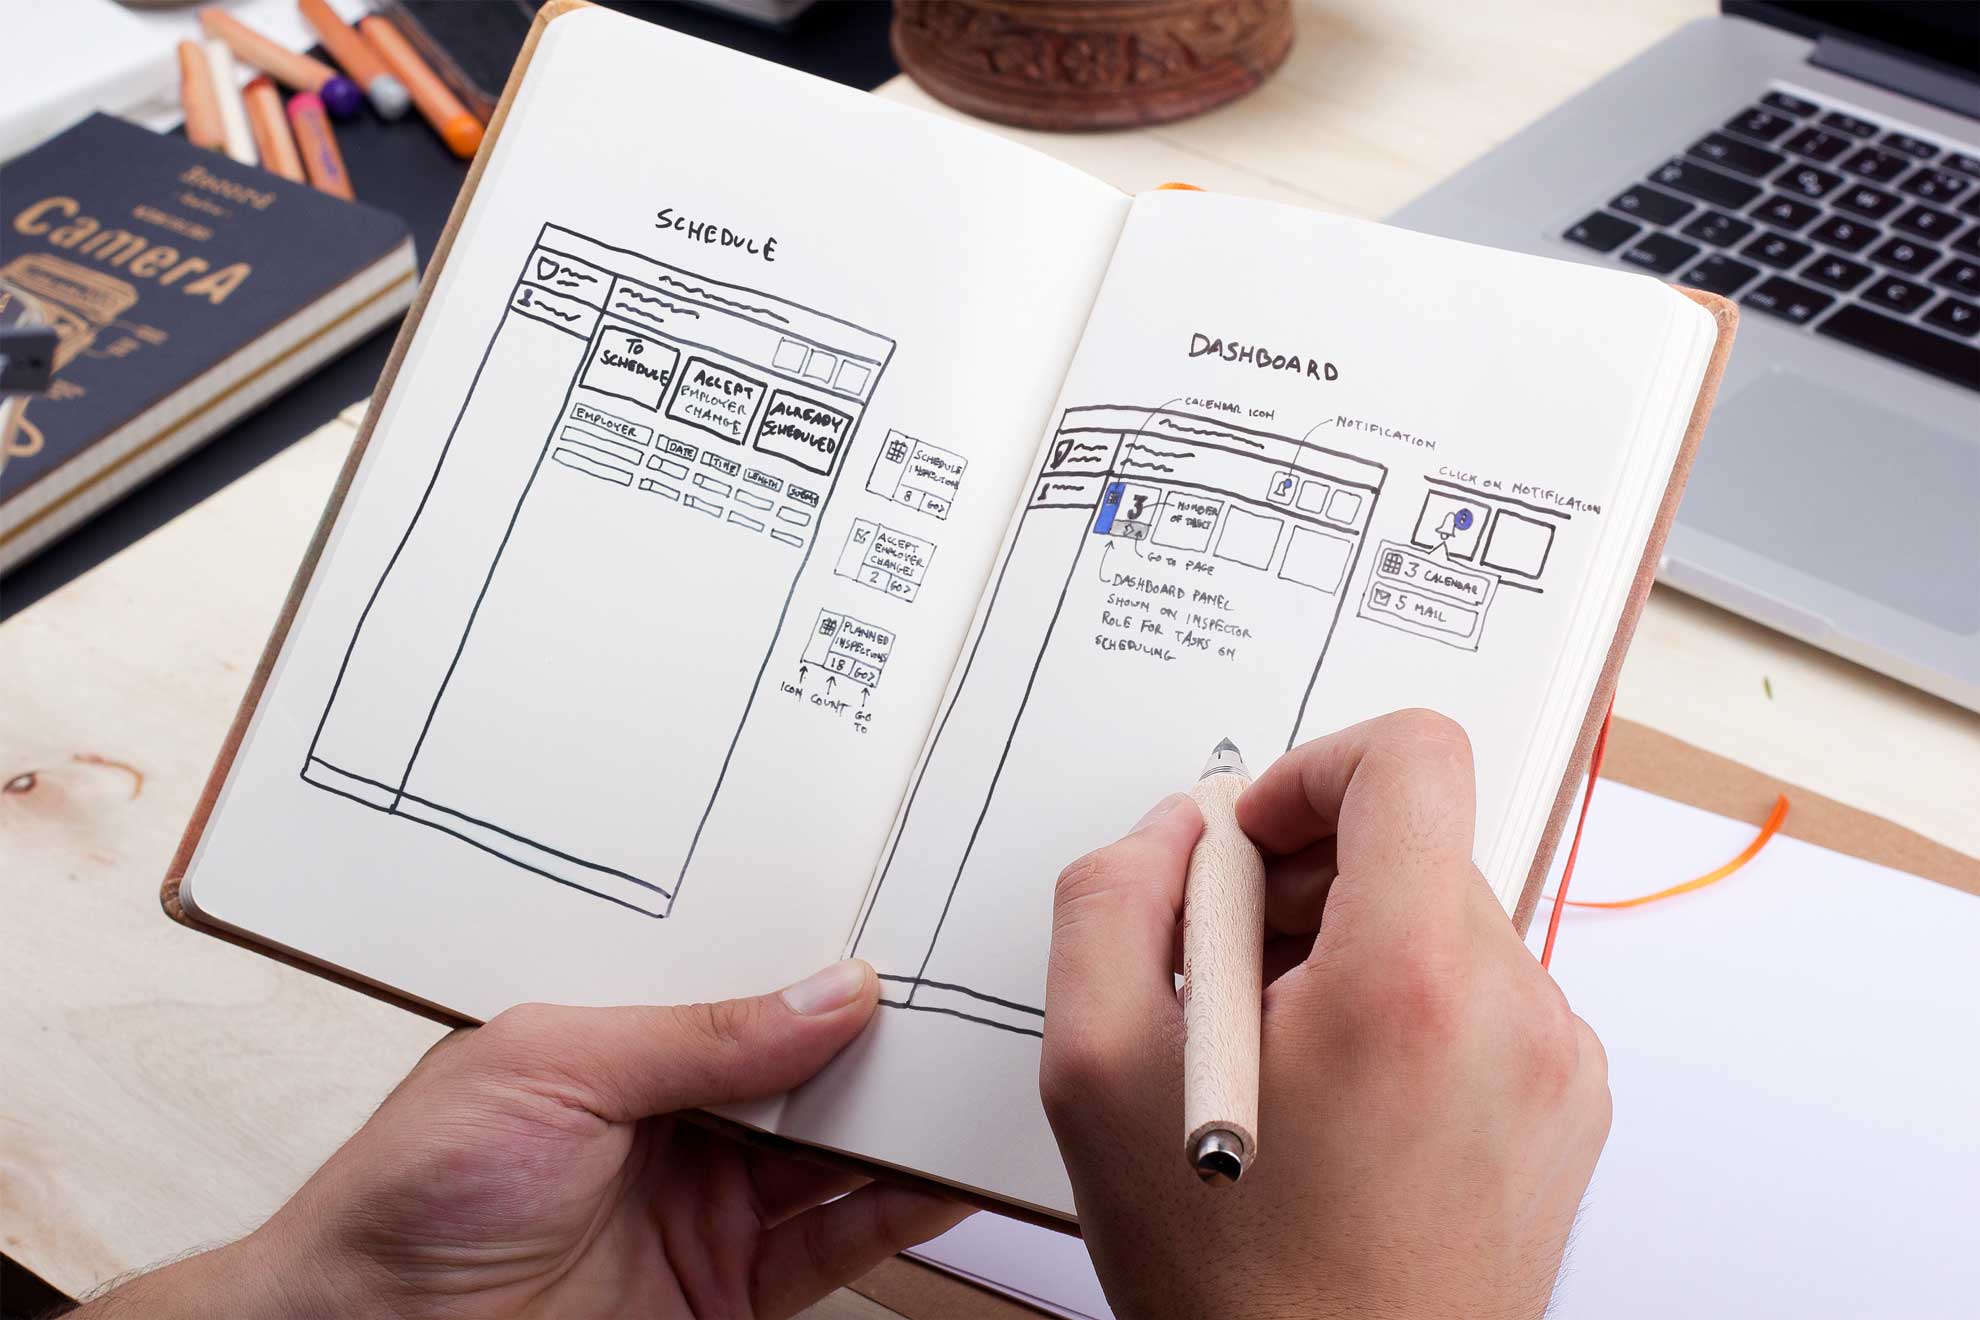 Record
CamerA
SCHEDULE
TO
SCHEDULE
ACCEPT
EMPLOYER
CHANGE
ALREADY
SCHEDULED
EMPLOYER
DATE
TIME
LENGTH
SCHEDULE
INSPECTIONS
8 GO>
ACCEPT
EMPLOYER
CHANGES
2 GO>
PLANNED
INSPECTIONS
18 GO>
ICON COUNT GO
TO
DASHBOARD
CALENDAR ICON
NOTIFICATION
3
NUMBER
OF
GO TO PAGE
DASHBOARD PANEL
SHOWN ON INSPECTOR
ROLE FOR TASKS ON
SCHEDULING
CLICK ON NOTIFICATION
3 CALENDAR
5 MAIL